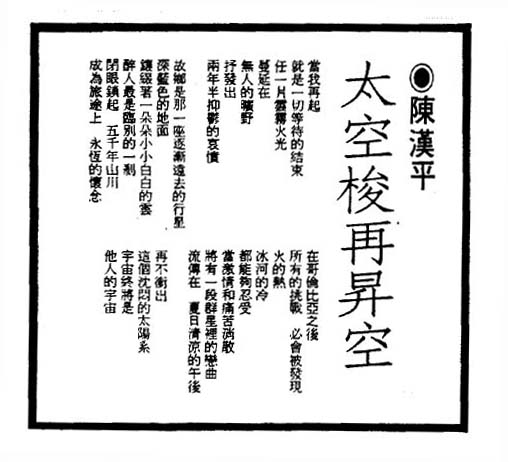 ◉陳漢平
太空梭再昇空
當我再起
就是一切等待的結束
任一片雲霧火光
蔓延在
無人的曠野
抒發出
兩年半抑鬱的哀憤
故鄉是那一座逐漸遠去的行星
深藍色的地面
鑲綴著一朵朵小小白白的雲
醉人最是臨別的一剎
閉眼鎖起 五千年山川
成為旅途上 永恆的懷念
在哥倫比亞之後
所有的挑戰 必會被發現
火的熱
冰河的冷
都能夠忍受
當激情和痛苦消散
將有一段群星裡的戀曲
流傳在 夏日清涼的午後
再不衝出
這個沈悶的太陽系
宇宙終將是
他人的宇宙